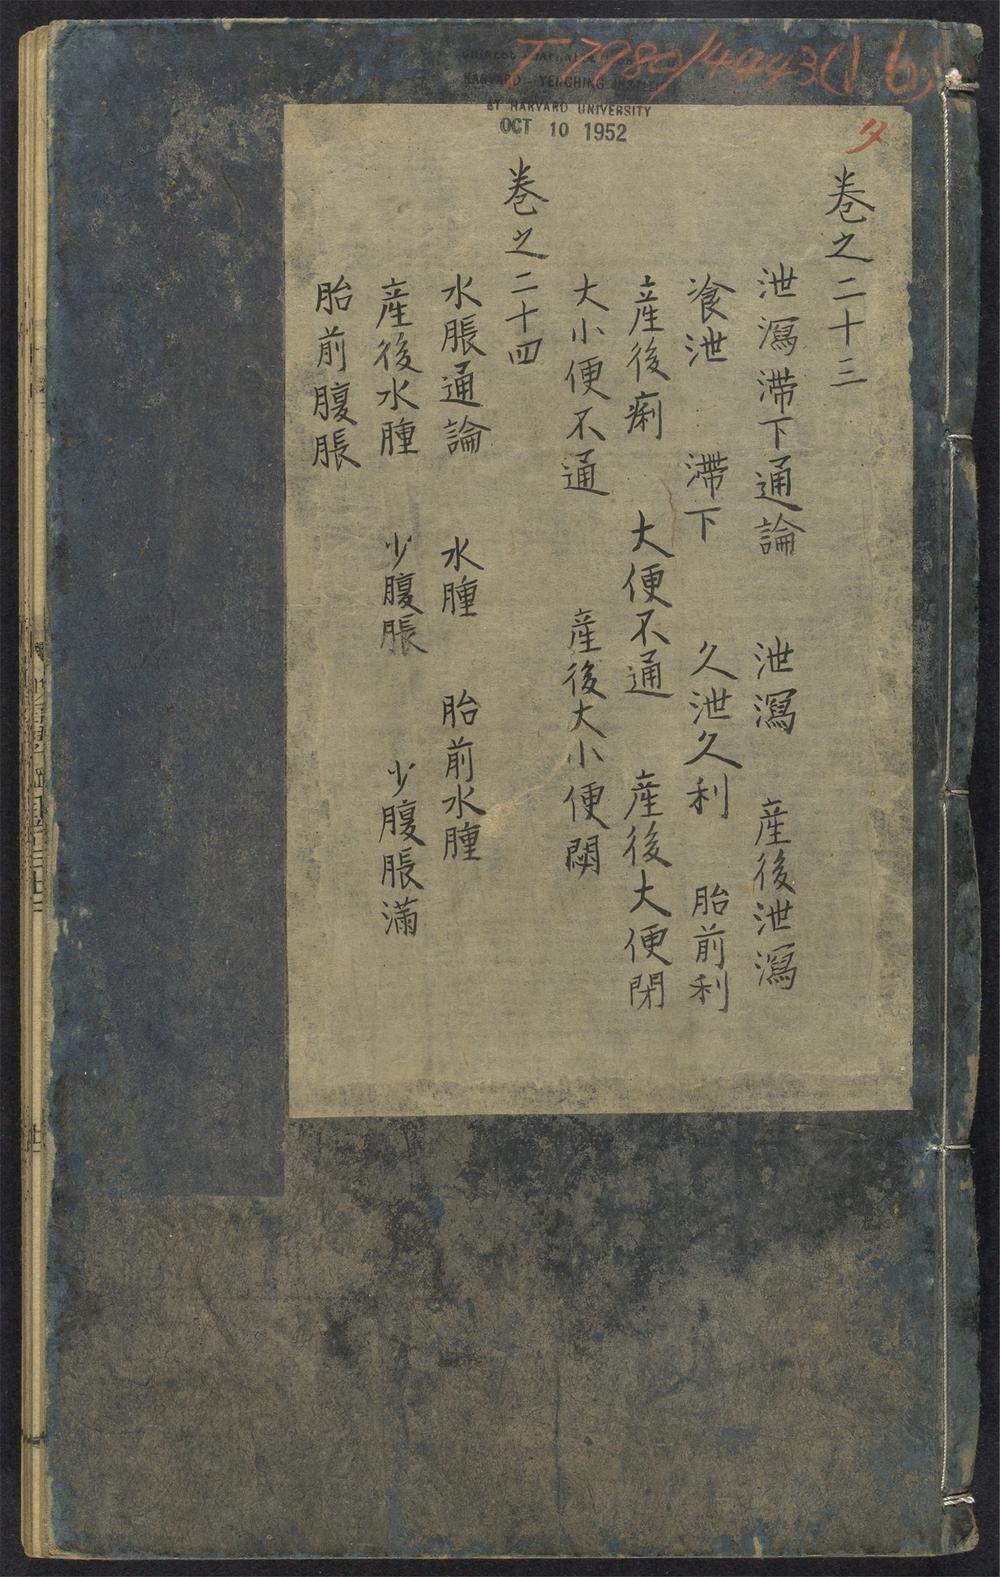 T 7980/4443(16)
HARVARD-YENCHING INSTITUTE
AT HARVARD UNIVERSITY
OCT 10 1952
卷之二十三
泄瀉滯下通論 泄瀉 產後泄瀉
飡泄 滯下 久泄久利 胎前利
產後痢 大便不通 產後大便閉
大小便不通 產後大小便閉
卷之二十四
水脹通論 水腫 胎前水腫
產後水腫 少腹脹 少腹脹滿
胎前腹脹